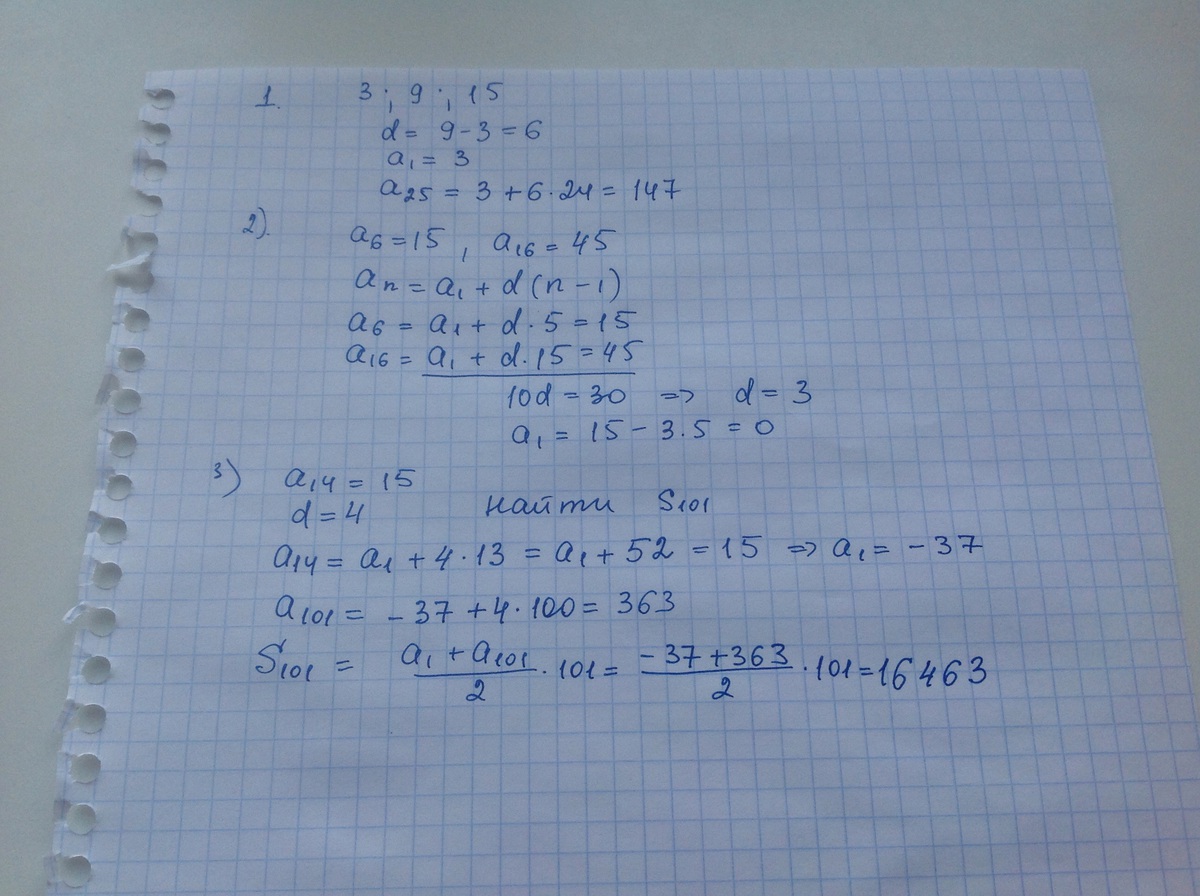 1. 3 ; 9 ; 15
d = 9 - 3 = 6
a₁ = 3
a₂₅ = 3 + 6 · 24 = 147
2). a₆ = 15 , a₁₆ = 45
aₙ = a₁ + d (n - 1)
a₆ = a₁ + d · 5 = 15
a₁₆ = a₁ + d · 15 = 45
10d = 30 => d = 3
a₁ = 15 - 3 . 5 = 0
3) a₁₄ = 15
d = 4 найти S₁₀₁
a₁₄ = a₁ + 4 · 13 = a₁ + 52 = 15 => a₁ = - 37
a₁₀₁ = - 37 + 4 · 100 = 363
S₁₀₁ = (a₁ + a₁₀₁)/2 · 101 = (- 37 + 363)/2 · 101 = 16463